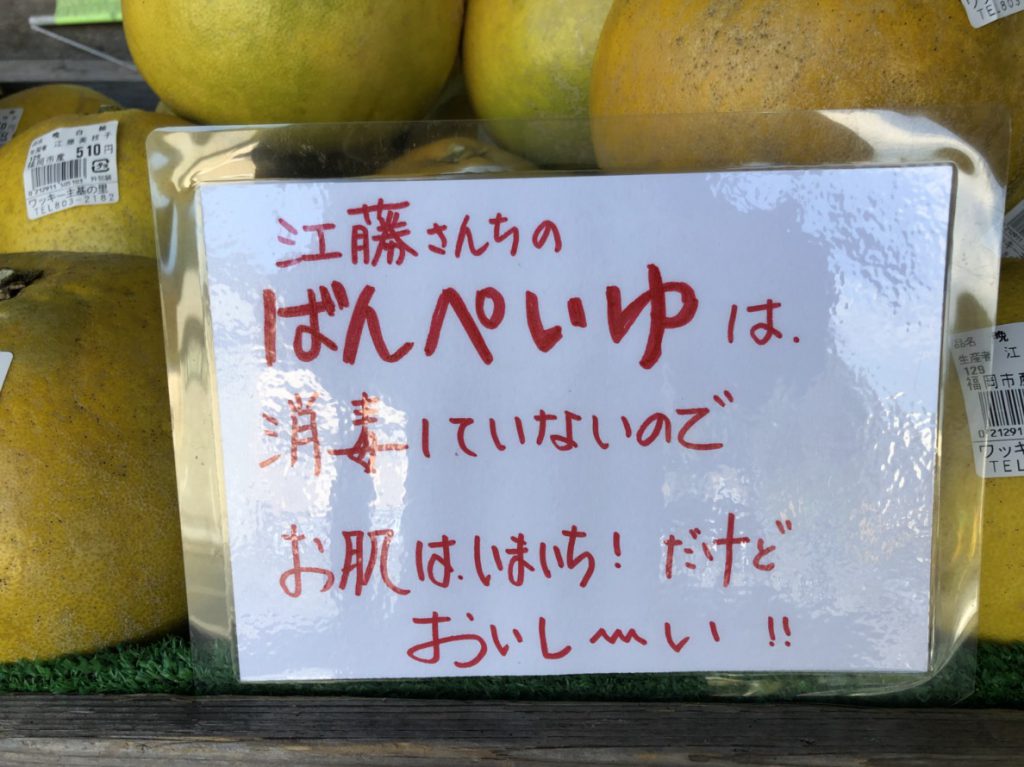 江藤さんちの
ばんぺいゆは.
消毒していないので
お肌は.いまいち! だけど
おいし〜い !!
晩白柚
江藤美枝子
129
福岡市産 510円
ワッキー主基の里
TEL803-2182
品名 晩
生産者 江
129
福岡市産
0 21291
ワッキ
TEL
TEL803